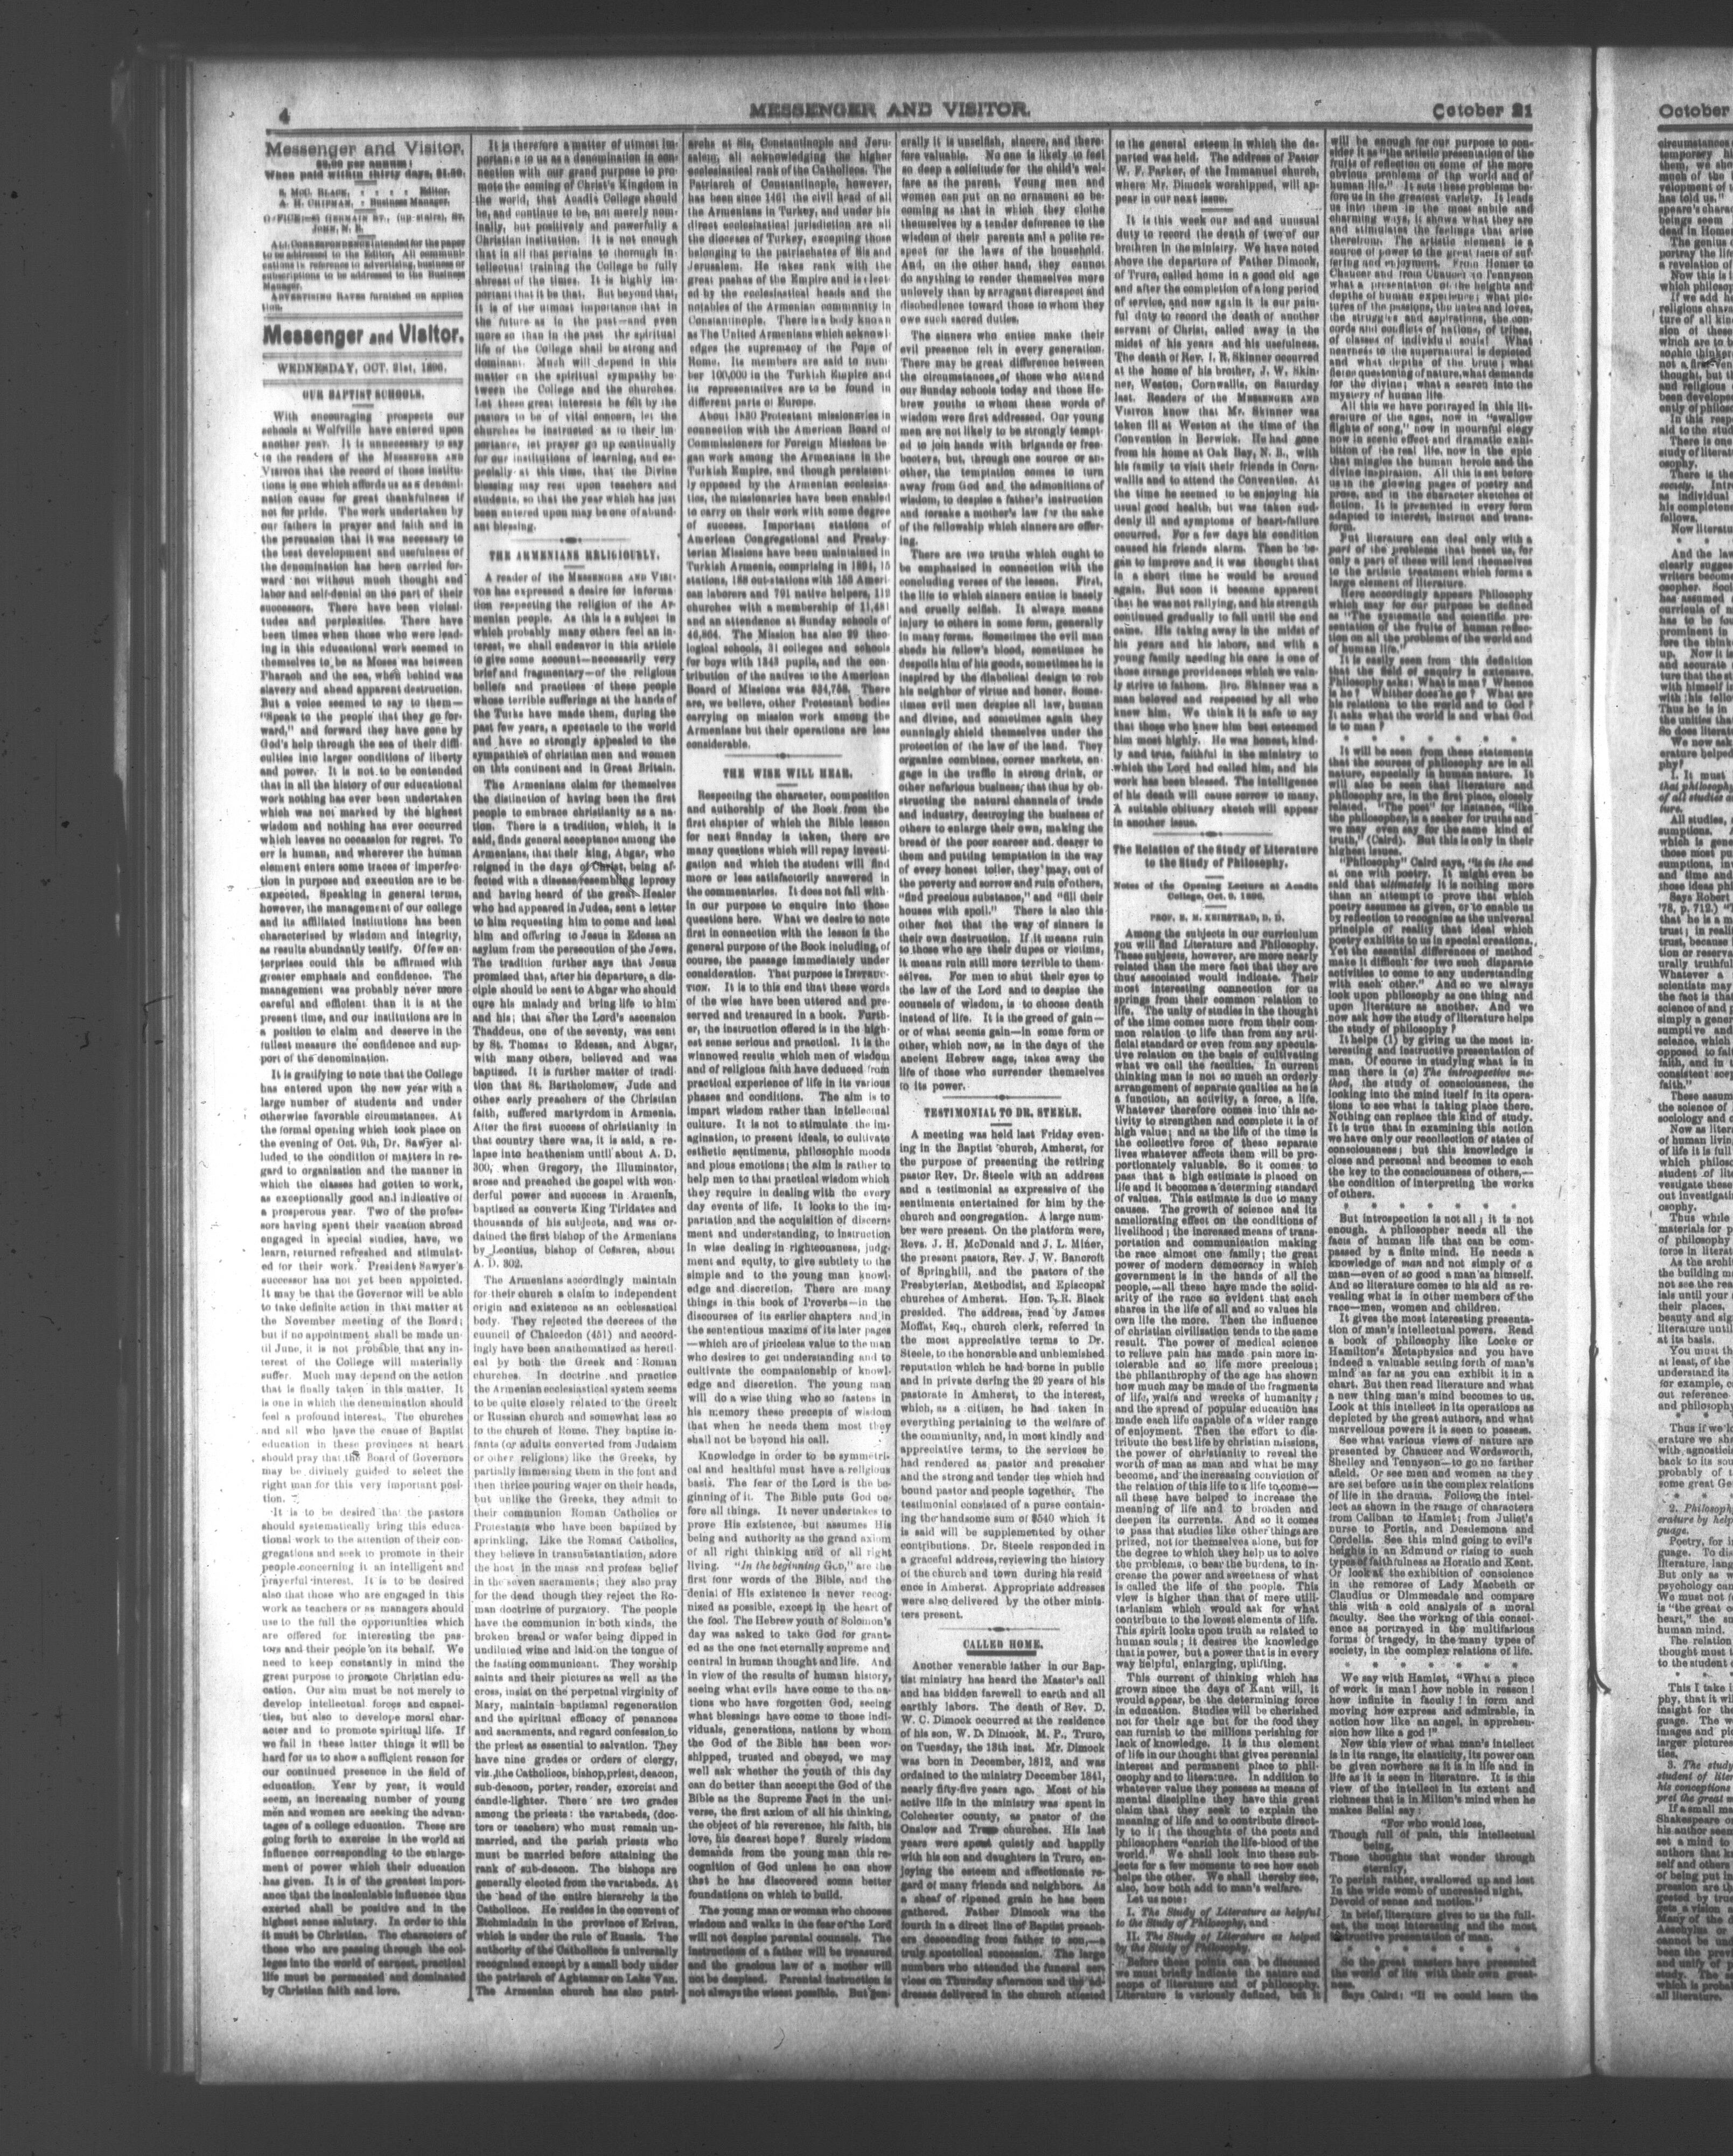 4
MESSENGER AND VISITOR.
October 21
Messenger and Visitor.
$2.00 per annum:
When paid within thirty days, $1.50.
S. McC. BLACK, : : : : Editor.
A. H. CHIPMAN, : Business Manager.
OFFICE: 85 GERMAIN ST., (up stairs), St.
JOHN, N. B.
ALL CORRESPONDENCE intended for the paper
to be addressed to the Editor. All communi-
cations in reference to advertising, business or
subscriptions to be addressed to the Business
Manager.
ADVERTISING RATES furnished on applica
tion.
Messenger and Visitor.
WEDNESDAY, OCT. 21st, 1896.
OUR BAPTIST SCHOOLS.
With encouraging prospects our
schools at Wolfville have entered upon
another year. It is unnecessary to say
to the readers of the MESSENGER AND
VISITOR that the record of those institu-
tions is one which affords us as a denomi-
nation cause for great thankfulness if
not for pride. The work undertaken by
our fathers in prayer and faith and in
the persuasion that it was necessary to
the best development and usefulness of
the denomination has been carried for-
ward not without much thought and
labor and self-denial on the part of their
successors. There have been vicissi-
tudes and perplexities. There have
been times when those who were lead-
ing in this educational work seemed to
themselves to be as Moses was between
Pharaoh and the sea, when behind was
slavery and ahead apparent destruction.
But a voice seemed to say to them—
"Speak to the people that they go for-
ward," and forward they have gone by
God's help through the sea of their diffi-
culties into larger conditions of liberty
and power. It is not to be contended
that in all the history of our educational
work nothing has ever been undertaken
which was not marked by the highest
wisdom and nothing has ever occurred
which leaves no occasion for regret. To
err is human, and wherever the human
element enters some traces of imperfec-
tion in purpose and execution are to be
expected. Speaking in general terms,
however, the management of our college
and its affiliated institutions has been
characterised by wisdom and integrity,
as results abundantly testify. Of few en-
terprises could this be affirmed with
greater emphasis and confidence. The
management was probably never more
careful and efficient than it is at the
present time, and our institutions are in
a position to claim and deserve in the
fullest measure the confidence and sup-
port of the denomination.
It is gratifying to note that the College
has entered upon the new year with a
large number of students and under
otherwise favorable circumstances. At
the formal opening which took place on
the evening of Oct. 9th, Dr. Sawyer al-
luded to the condition of matters in re-
gard to organisation and the manner in
which the classes had gotten to work,
as exceptionally good and indicative of
a prosperous year. Two of the profes-
sors having spent their vacation abroad
engaged in special studies, have, we
learn, returned refreshed and stimulat-
ed for their work. President Sawyer's
successor has not yet been appointed.
It may be that the Governor will be able
to take definite action in that matter at
the November meeting of the Board;
but if no appointment shall be made un-
til June, it is not probable that any in-
terest of the College will materially
suffer. Much may depend on the action
that is finally taken in this matter. It
is one in which the denomination should
feel a profound interest. The churches
and all who have the cause of Baptist
education in these provinces at heart
should pray that the Board of Governors
may be divinely guided to select the
right man for this very important posi-
tion.
It is to be desired that the pastors
should systematically bring this educa-
tional work to the attention of their con-
gregations and seek to promote in their
people concerning it an intelligent and
prayerful interest. It is to be desired
also that those who are engaged in this
work as teachers or as managers should
use to the full the opportunities which
are offered for interesting the pas-
tors and their people on its behalf. We
need to keep constantly in mind the
great purpose to promote Christian edu-
cation. Our aim must be not merely to
develop intellectual forces and capaci-
ties, but also to develope moral char-
acter and to promote spiritual life. If
we fail in these latter things it will be
hard for us to show a sufficient reason for
our continued presence in the field of
education. Year by year, it would
seem, an increasing number of young
men and women are seeking the advan-
tages of a college education. These are
going forth to exercise in the world an
influence corresponding to the enlarge-
ment of power which their education
has given. It is of the greatest import-
ance that the incalculable influence thus
exerted shall be positive and in the
highest sense salutary. In order to this
it must be Christian. The characters of
those who are passing through the col-
leges into the world of earnest, practical
life must be permeated and dominated
by Christian faith and love.
It is therefore a matter of utmost im-
portance to us as a denomination in con-
nection with our grand purpose to pro-
mote the coming of Christ's Kingdom in
the world, that Acadia College should
be, and continue to be, not merely nom-
inally, but positively and powerfully a
Christian institution. It is not enough
that in all that pertains to thorough in-
tellectual training the College be fully
abreast of the times. It is highly im-
portant that it be that. But beyond that,
it is of the utmost importance that in
the future as in the past—and even
more so than in the past the spiritual
life of the College shall be strong and
dominant. Much will depend in this
matter on the spiritual sympathy be-
tween the College and the churches.
Let these great interests be felt by the
pastors to be of vital concern, let the
churches be instructed as to their im-
portance, let prayer go up continually
for our institutions of learning, and es-
pecially at this time, that the Divine
blessing may rest upon teachers and
students, so that the year which has just
been entered upon may be one of abund-
ant blessing.
THE ARMENIANS RELIGIOUSLY.
A reader of the MESSENGER AND VISI-
TOR has expressed a desire for informa-
tion respecting the religion of the Ar-
menian people. As this is a subject in
which probably many others feel an in-
terest, we shall endeavor in this article
to give some account—necessarily very
brief and fragmentary—of the religious
beliefs and practices of these people
whose terrible sufferings at the hands of
the Turks have made them, during the
past few years, a spectacle to the world
and have so strongly appealed to the
sympathies of christian men and women
on this continent and in Great Britain.
The Armenians claim for themselves
the distinction of having been the first
people to embrace christianity as a na-
tion. There is a tradition, which, it is
said, finds general acceptance among the
Armenians, that their king, Abgar, who
reigned in the days of Christ, being af-
fected with a disease resembling leprosy
and having heard of the great Healer
who had appeared in Judea, sent a letter
to him requesting him to come and heal
him and offering to Jesus in Edessa an
asylum from the persecution of the Jews.
The tradition further says that Jesus
promised that, after his departure, a dis-
ciple should be sent to Abgar who should
cure his malady and bring life to him
and his; that after the Lord's ascension
Thaddeus, one of the seventy, was sent
by St. Thomas to Edessa, and Abgar,
with many others, believed and was
baptised. It is further matter of tradi-
tion that St. Bartholomew, Jude and
other early preachers of the Christian
faith, suffered martyrdom in Armenia.
After the first success of christianity in
that country there was, it is said, a re-
lapse into heathenism until about A. D.
300, when Gregory, the Illuminator,
arose and preached the gospel with won-
derful power and success in Armenia,
baptised as converts King Tiridates and
thousands of his subjects, and was or-
dained the first bishop of the Armenians
by Leontius, bishop of Cesarea, about
A. D. 302.
The Armenians accordingly maintain
for their church a claim to independent
origin and existence as an ecclesiastical
body. They rejected the decrees of the
council of Chalcedon (451) and accord-
ingly have been anathematised as hereti-
cal by both the Greek and Roman
churches. In doctrine and practice
the Armenian ecclesiastical system seems
to be quite closely related to the Greek
or Russian church and somewhat less so
to the church of Rome. They baptise in-
fants (or adults converted from Judaism
or other religions) like the Greeks, by
partially immersing them in the font and
then thrice pouring water on their heads,
but unlike the Greeks, they admit to
their communion Roman Catholics or
Protestants who have been baptised by
sprinkling. Like the Roman Catholics,
they believe in transubstantiation, adore
the host in the mass and profess belief
in the seven sacraments; they also pray
for the dead though they reject the Ro-
man doctrine of purgatory. The people
have the communion in both kinds, the
broken bread or wafer being dipped in
undiluted wine and laid on the tongue of
the fasting communicant. They worship
saints and their pictures as well as the
cross, insist on the perpetual virginity of
Mary, maintain baptismal regeneration
and the spiritual efficacy of penances
and sacraments, and regard confession to
the priest as essential to salvation. They
have nine grades or orders of clergy,
viz. the Catholicos, bishop, priest, deacon,
sub-deacon, porter, reader, exorcist and
candle-lighter. There are two grades
among the priests: the vartabeds, (doc-
tors or teachers) who must remain un-
married, and the parish priests who
must be married before attaining the
rank of sub-deacon. The bishops are
generally elected from the vartabeds. At
the head of the entire hierarchy is the
Catholicos. He resides in the convent of
Etchmiadzin in the province of Erivan,
which is under the rule of Russia. The
authority of the Catholicos is universally
recognised except by a small body under
the patriarch of Aghtamar on Lake Van.
The Armenian church has also patri-
archs at Sis, Constantinople and Jeru-
salem, all acknowledging the higher
ecclesiastical rank of the Catholicos. The
Patriarch of Constantinople, however,
has been since 1461 the civil head of all
the Armenians in Turkey, and under his
direct ecclesiastical jurisdiction are all
the dioceses of Turkey, excepting those
belonging to the patriachates of Sis and
Jerusalem. He takes rank with the
great pashas of the Empire and is elect-
ed by the ecclesiastical heads and the
notables of the Armenian community in
Constantinople. There is a body known
as The United Armenians which acknowl-
edges the supremacy of the Pope of
Rome. Its members are said to num-
ber 100,000 in the Turkish Empire and
its representatives are to be found in
different parts of Europe.
About 1830 Protestant missionaries in
connection with the American Board of
Commissioners for Foreign Missions be-
gan work among the Armenians in the
Turkish Empire, and though persistent-
ly opposed by the Armenian ecclesias-
tics, the missionaries have been enabled
to carry on their work with some degree
of success. Important stations of
American Congregational and Presby-
terian Missions have been maintained in
Turkish Armenia, comprising in 1891, 15
stations, 188 out-stations with 158 Ameri-
can laborers and 791 native helpers, 119
churches with a membership of 11,481
and an attendance at Sunday schools of
46,864. The Mission has also 29 theo-
logical schools, 31 colleges and schools
for boys with 1348 pupils, and the con-
tribution of the natives to the American
Board of Missions was $34,738. There
are, we believe, other Protestant bodies
carrying on mission work among the
Armenians but their operations are less
considerable.
THE WISE WILL HEAR.
Respecting the character, composition
and authorship of the Book from the
first chapter of which the Bible lesson
for next Sunday is taken, there are
many questions which will repay investi-
gation and which the student will find
more or less satisfactorily answered in
the commentaries. It does not fall with-
in our purpose to enquire into those
questions here. What we desire to note
first in connection with the lesson is the
general purpose of the Book including, of
course, the passage immediately under
consideration. That purpose is INSTRUC-
TION. It is to this end that these words
of the wise have been uttered and pre-
served and treasured in a book. Furth-
er, the instruction offered is in the high-
est sense serious and practical. It is the
winnowed results which men of wisdom
and of religious faith have deduced from
practical experience of life in its various
phases and conditions. The aim is to
impart wisdom rather than intellectual
culture. It is not to stimulate the im-
agination, to present ideals, to cultivate
esthetic sentiments, philosophic moods
and pious emotions; the aim is rather to
help men to that practical wisdom which
they require in dealing with the every
day events of life. It looks to the im-
partation and the acquisition of discern-
ment and understanding, to instruction
in wise dealing in righteousness, judg-
ment and equity, to give subtlety to the
simple and to the young man knowl-
edge and discretion. There are many
things in this book of Proverbs—in the
discourses of its earlier chapters and in
the sententious maxims of its later pages
—which are of priceless value to the man
who desires to get understanding and to
cultivate the companionship of knowl-
edge and discretion. The young man
will do a wise thing who so fastens in
his memory these precepts of wisdom
that when he needs them most they
shall not be beyond his call.
Knowledge in order to be symmetri-
cal and healthful must have a religious
basis. The fear of the Lord is the be-
ginning of it. The Bible puts God be-
fore all things. It never undertakes to
prove His existence, but assumes His
being and authority as the grand axiom
of all right thinking and of all right
living. "In the beginning GOD," are the
first four words of the Bible, and the
denial of His existence is never recog-
nized as possible, except in the heart of
the fool. The Hebrew youth of Solomon's
day was asked to take God for grant-
ed as the one fact eternally supreme and
central in human thought and life. And
in view of the results of human history,
seeing what evils have come to the na-
tions who have forgotten God, seeing
what blessings have come to those indi-
viduals, generations, nations by whom
the God of the Bible has been wor-
shipped, trusted and obeyed, we may
well ask whether the youth of this day
can do better than accept the God of the
Bible as the Supreme Fact in the uni-
verse, the first axiom of all his thinking,
the object of his reverence, his faith, his
love, his dearest hope? Surely wisdom
demands from the young man this re-
cognition of God unless he can show
that he has discovered some better
foundations on which to build.
The young man or woman who chooses
wisdom and walks in the fear of the Lord
will not despise parental counsels. The
instructions of a father will be treasured
and the gracious law of a mother will
not be despised. Parental instruction is
not always the wisest possible. But gen-
erally it is unselfish, sincere, and there-
fore valuable. No one is likely to feel
so deep a solicitude for the child's wel-
fare as the parent. Young men and
women can put on no ornament so be-
coming as that in which they clothe
themselves by a tender deference to the
wisdom of their parents and a polite re-
spect for the laws of the household.
And, on the other hand, they cannot
do anything to render themselves more
unlovely than by arragant disrespect and
disobedience toward those to whom they
owe such sacred duties.
The sinners who entice make their
evil presence felt in every generation.
There may be great difference between
the circumstances of those who attend
our Sunday schools today and those He-
brew youths to whom these words of
wisdom were first addressed. Our young
men are not likely to be strongly tempt-
ed to join hands with brigands or free-
booters, but, through one source or an-
other, the temptation comes to turn
away from God and the admonitions of
wisdom, to despise a father's instruction
and forsake a mother's law for the sake
of the fellowship which sinners are offer-
ing.
There are two truths which ought to
be emphasised in connection with the
concluding verses of the lesson. First,
the life to which sinners entice is basely
and cruelly selfish. It always means
injury to others in some form, generally
in many forms. Sometimes the evil man
sheds his fellow's blood, sometimes he
despoils him of his goods, sometimes he is
inspired by the diabolical design to rob
his neighbor of virtue and honor. Some-
times evil men despise all law, human
and divine, and sometimes again they
cunningly shield themselves under the
protection of the law of the land. They
organise combines, corner markets, en-
gage in the traffic in strong drink, or
other nefarious business; that thus by ob-
structing the natural channels of trade
and industry, destroying the business of
others to enlarge their own, making the
bread of the poor scarcer and dearer to
them and putting temptation in the way
of every honest toiler, they may, out of
the poverty and sorrow and ruin of others,
"find precious substance," and "fill their
houses with spoil." There is also this
other fact that the way of sinners is
their own destruction. If it means ruin
to those who are their dupes or victims,
it means ruin still more terrible to them-
selves. For men to shut their eyes to
the law of the Lord and to despise the
counsels of wisdom, is to choose death
instead of life. It is the greed of gain—
or of what seems gain—in some form or
other, which now, as in the days of the
ancient Hebrew sage, takes away the
life of those who surrender themselves
to its power.
TESTIMONIAL TO DR. STEELE.
A meeting was held last Friday even-
ing in the Baptist church, Amherst, for
the purpose of presenting the retiring
pastor Rev. Dr. Steele with an address
and a testimonial as expressive of the
sentiments entertained for him by the
church and congregation. A large num-
ber were present. On the platform were,
Revs. J. H. McDonald and J. L. Miner,
the present pastors, Rev. J. W. Bancroft
of Springhill, and the pastors of the
Presbyterian, Methodist, and Episcopal
churches of Amherst. Hon. T. R. Black
presided. The address, read by James
Moffat, Esq., church clerk, referred in
the most appreciative terms to Dr.
Steele, to the honorable and unblemished
reputation which he had borne in public
and in private during the 29 years of his
pastorate in Amherst, to the interest,
which, as a citizen, he had taken in
everything pertaining to the welfare of
the community, and, in most kindly and
appreciative terms, to the services he
had rendered as pastor and preacher
and the strong and tender ties which had
bound pastor and people together. The
testimonial consisted of a purse contain-
ing the handsome sum of $540 which it
is said will be supplemented by other
contributions. Dr. Steele responded in
a graceful address, reviewing the history
of the church and town during his resid
ence in Amherst. Appropriate addresses
were also delivered by the other minis-
ters present.
CALLED HOME.
Another venerable father in our Bap-
tist ministry has heard the Master's call
and has bidden farewell to earth and all
earthly labors. The death of Rev. D.
W. C. Dimock occurred at the residence
of his son, W. D. Dimock, M. P., Truro,
on Tuesday, the 13th inst. Mr. Dimock
was born in December, 1812, and was
ordained to the ministry December 1841,
nearly fifty-five years ago. Most of his
active life in the ministry was spent in
Colchester county, as pastor of the
Onslow and Truro churches. His last
years were spent quietly and happily
with his son and daughters in Truro, en-
joying the esteem and affectionate re-
gard of many friends and neighbors. As
a sheaf of ripened grain he has been
gathered. Father Dimock was the
fourth in a direct line of Baptist preach-
ers descending from father to son,—a
truly apostolical succession. The large
numbers who attended the funeral ser-
vices on Thursday afternoon and the ad-
dresses delivered in the church attested
to the general esteem in which the de-
parted was held. The address of Pastor
W. F. Parker, of the Immanuel church,
where Mr. Dimock worshipped, will ap-
pear in our next issue.
It is this week our sad and unusual
duty to record the death of two of our
brethren in the ministry. We have noted
above the departure of Father Dimock,
of Truro, called home in a good old age
and after the completion of a long period
of service, and now again it is our pain-
ful duty to record the death of another
servant of Christ, called away in the
midst of his years and his usefulness.
The death of Rev. I. R. Skinner occurred
at the home of his brother, J. W. Skin-
ner, Weston, Cornwallis, on Saturday
last. Readers of the MESSENGER AND
VISITOR know that Mr. Skinner was
taken ill at Weston at the time of the
Convention in Berwick. He had gone
from his home at Oak Bay, N. B., with
his family to visit their friends in Corn-
wallis and to attend the Convention. At
the time he seemed to be enjoying his
usual good health, but was taken sud-
denly ill and symptoms of heart-failure
occurred. For a few days his condition
caused his friends alarm. Then he be-
gan to improve and it was thought that
in a short time he would be around
again. But soon it became apparent
that he was not rallying, and his strength
continued gradually to fall until the end
came. His taking away in the midst of
his years and his labors, and with a
young family needing his care is one of
those strange providences which we vain-
ly strive to fathom. Bro. Skinner was a
man beloved and respected by all who
knew him. We think it is safe to say
that those who knew him best esteemed
him most highly. He was honest, kind-
ly and true, faithful in the ministry to
which the Lord had called him, and his
work has been blessed. The intelligence
of his death will cause sorrow to many.
A suitable obituary sketch will appear
in another issue.
The Relation of the Study of Literature
to the Study of Philosophy.
Notes of the Opening Lecture at Acadia
College, Oct. 9. 1896.
PROF. E. M. KEIRSTEAD, D. D.
Among the subjects in our curriculum
you will find Literature and Philosophy.
These subjects, however, are more nearly
related than the mere fact that they are
thus associated would indicate. Their
most interesting connection for us
springs from their common relation to
life. The unity of studies in the thought
of the time comes more from their com-
mon relation to life than from any arti-
ficial standard or even from any specula-
tive relation on the basis of cultivating
what we call the faculties. In current
thinking man is not so much an orderly
arrangement of separate qualties as he is
a function, an activity, a force, a life.
Whatever therefore comes into this ac-
tivity to strengthen and complete it is of
high value; and as the life of the time is
the collective force of these separate
lives whatever affects them will be pro-
portionately valuable. So it comes to
pass that a high estimate is placed on
life and it becomes a determing standard
of values. This estimate is due to many
causes. The growth of science and its
ameliorating effect on the conditions of
livelihood; the increased means of trans-
portation and communication making
the race almost one family; the great
power of modern democracy in which
government is in the hands of all the
people,—all these have made the solid-
arity of the race so evident that each
shares in the life of all and so values his
own life the more. Then the influence
of christian civilisation tends to the same
result. The power of medical science
to relieve pain has made pain more in-
tolerable and so life more precious;
the philanthropy of the age has shown
how much may be made of the fragments
of life, waifs and wrecks of humanity;
and the spread of popular education has
made each life capable of a wider range
of enjoyment. Then the effort to dis-
tribute the best life by christian missions,
the power of christianity to reveal the
worth of man as man and what he may
become, and the increasing conviction of
the relation of this life to a life to come—
all these have helped to increase the
meaning of life and to broaden and
deepen its currents. And so it comes
to pass that studies like other things are
prized, not for themselves alone, but for
the degree to which they help us to solve
the problems, to bear the burdens, to in-
crease the power and sweetness of what
is called the life of the people. This
view is higher than that of mere utili-
tarianism which would ask for what
contribute to the lowest elements of life.
This spirit looks upon truth as related to
human souls; it desires the knowledge
that is power, but a power that is in every
way helpful, enlarging, uplifting.
This current of thinking which has
grown since the days of Kant will, it
would appear, be the determining force
in education. Studies will be cherished
not for their age but for the food they
can furnish to the millions perishing for
lack of knowledge. It is this element
of life in our thought that gives perennial
interest and permanent place to phil-
osophy and to literature. In addition to
whatever value they possess as means of
mental discipline they have this great
claim that they seek to explain the
meaning of life and to contribute direct-
ly to it; the thoughts of the poets and
philosophers "enrich the life-blood of the
world." We shall look into these sub-
jects for a few moments to see how each
helps the other. We shall thereby see,
also, how both add to man's welfare.
Let us note:
I. The Study of Literature as helpful
to the Study of Philosophy, and
II. The Study of Literature as helped
by the Study of Philosophy.
Before these points can be discussed
we must briefly indicate the nature and
scope of literature and of philosophy.
Literature is variously defined, but it
will be enough for our purpose to con-
sider it as "the artistic presentation of the
fruits of reflection on some of the more
obvious problems of the world and of
human life." It sets these problems be-
fore us in the greatest variety. It leads
us into them in the most subtle and
charming ways, it shows what they are
and stimulates the feelings that arise
therefrom. The artistic element is a
source of power to the great facts of suf-
fering and enjoyment. From Homer to
Chaucer and from Chaucer to Tennyson
what a presentation of the heights and
depths of human experience; what pic-
tures of the passions, the hates and loves,
the struggles and aspirations, the con-
cords and conflicts of nations, of tribes,
of classes of individual souls! What
nearness to the supernatural is depicted
and what depths of the brute; what
fierce questioning of nature, what demands
for the divine; what a search into the
mystery of human life.
All this we have portrayed in this lit-
erature of the ages, now in "swallow
flights of song," now in mournful elegy
now in scenic effect and dramatic exhi-
bition of the real life, now in the epic
that mingles the human heroic and the
divine inspiration. All this is set before
us in the glowing pages of poetry and
prose, and in the character sketches of
fiction. It is presented in every form
adapted to interest, instruct and trans-
form.
Put literature can deal only with a
part of the problems that beset us, for
only a part of these will lend themselves
to the artistic treatment which forms a
large element of literature.
Here accordingly appears Philosophy
which may for our purpose be defined
as "The systematic and scientific pre-
sentation of the fruits of human reflec-
tion on all the problems of the world and
of human life."
It is easily seen from this definition
that the field of enquiry is extensive.
Philosophy asks: What is man? Whence
is he? Whither does he go? What are
his relations to the world and to God?
It asks what the world is and what God
is to man?
* * * * *
It will be seen from these statements
that the sources of philosophy are in all
nature, especially in human nature. It
will also be seen that literature and
philosophy are, in the first place, closely
related. "The poet" for instance, "like
the philosopher, is a seeker for truths and
we may even say for the same kind of
truth," (Caird). But this is only in their
highest issues.
"Philosophy" Caird says, "is in the end
at one with poetry. It might even be
said that ultimately it is nothing more
than an attempt to prove that which
poetry assumes as given, or to enable us
by reflection to recognise as the universal
principle of reality that ideal which
poetry exhibits to us in special creations.
Yet the essential differences of method
make it difficult for two such disparate
activities to come to any understanding
with each other." And so we always
look upon philosophy as one thing and
upon literature as another. And we
now ask how the study of literature helps
the study of philosophy?
It helps (1) by giving us the most in-
teresting and instructive presentation of
man. Of course in studying what is in
man there is (a) The introspective me-
thod, the study of consciousness, the
looking into the mind itself in its opera-
tions to see what is taking place there.
Nothing can replace this kind of study.
It is true that in examining this action
we have only our recollection of states of
consciousness; but this knowledge is
close and personal and becomes to each
the key to the consciousness of others,—
the condition of interpreting the works
of others.
* * * * * *
But introspection is not all; it is not
enough. A philosopher needs all the
facts of human life that can be com-
passed by a finite mind. He needs a
knowledge of man and not simply of a
man—even of so good a man as himself.
And so literature comes to his aid as re-
vealing what is in other members of the
race—men, women and children.
It gives the most interesting presenta-
tion of man's intellectual powers. Read
a book of philosophy like Locke or
Hamilton's Metaphysics and you have
indeed a valuable setting forth of man's
mind as far as you can exhibit it in a
chart. But then read literature and what
a new thing man's mind becomes to us.
Look at this intellect in its operations as
depicted by the great authors, and what
marvellous powers it is seen to possess.
See what various views of nature are
presented by Chaucer and Wordsworth,
Shelley and Tennyson—to go no farther
afield. Or see men and women as they
are set before us in the complex relations
of life in the drama. Follow the intel-
lect as shown in the range of characters
from Caliban to Hamlet; from Juliet's
nurse to Portia, and Desdemona and
Cordelia. See this mind going to evil's
heights in an Edmund or rising to such
types of faithfulness as Horatio and Kent.
Or look at the exhibition of conscience
in the remorse of Lady Macbeth or
Claudius or Dimmesdale and compare
this with a cold analysis of a moral
faculty. See the workng of this consci-
ence as portrayed in the multifarious
forms of tragedy, in the many types of
society, in the complex relations of life.
* * * * * *
We say with Hamlet, "What a piece
of work is man! how noble in reason!
how infinite in faculty! in form and
moving how express and admirable, in
action how like an angel, in apprehen-
sion how like a god!"
Now this view of what man's intellect
is in its range, its elasticity, its power can
be given nowhere as it is in life and in
life as it is seen in literature. It is this
view of the intellect in its extent and
richness that is in Milton's mind when he
makes Belial say:
"For who would lose,
Though full of pain, this intellectual
being,
Those thoughts that wonder through
eternity,
To perish rather, swallowed up and lost
In the wide womb of uncreated night,
Devoid of sense and motion."
In brief, literature gives to us the full-
est, the most interesting and the most
instructive presentation of man.
* * * * * *
So the great masters have presented
the world of life with their own great-
ness.
Says Caird: "If we could learn the
October